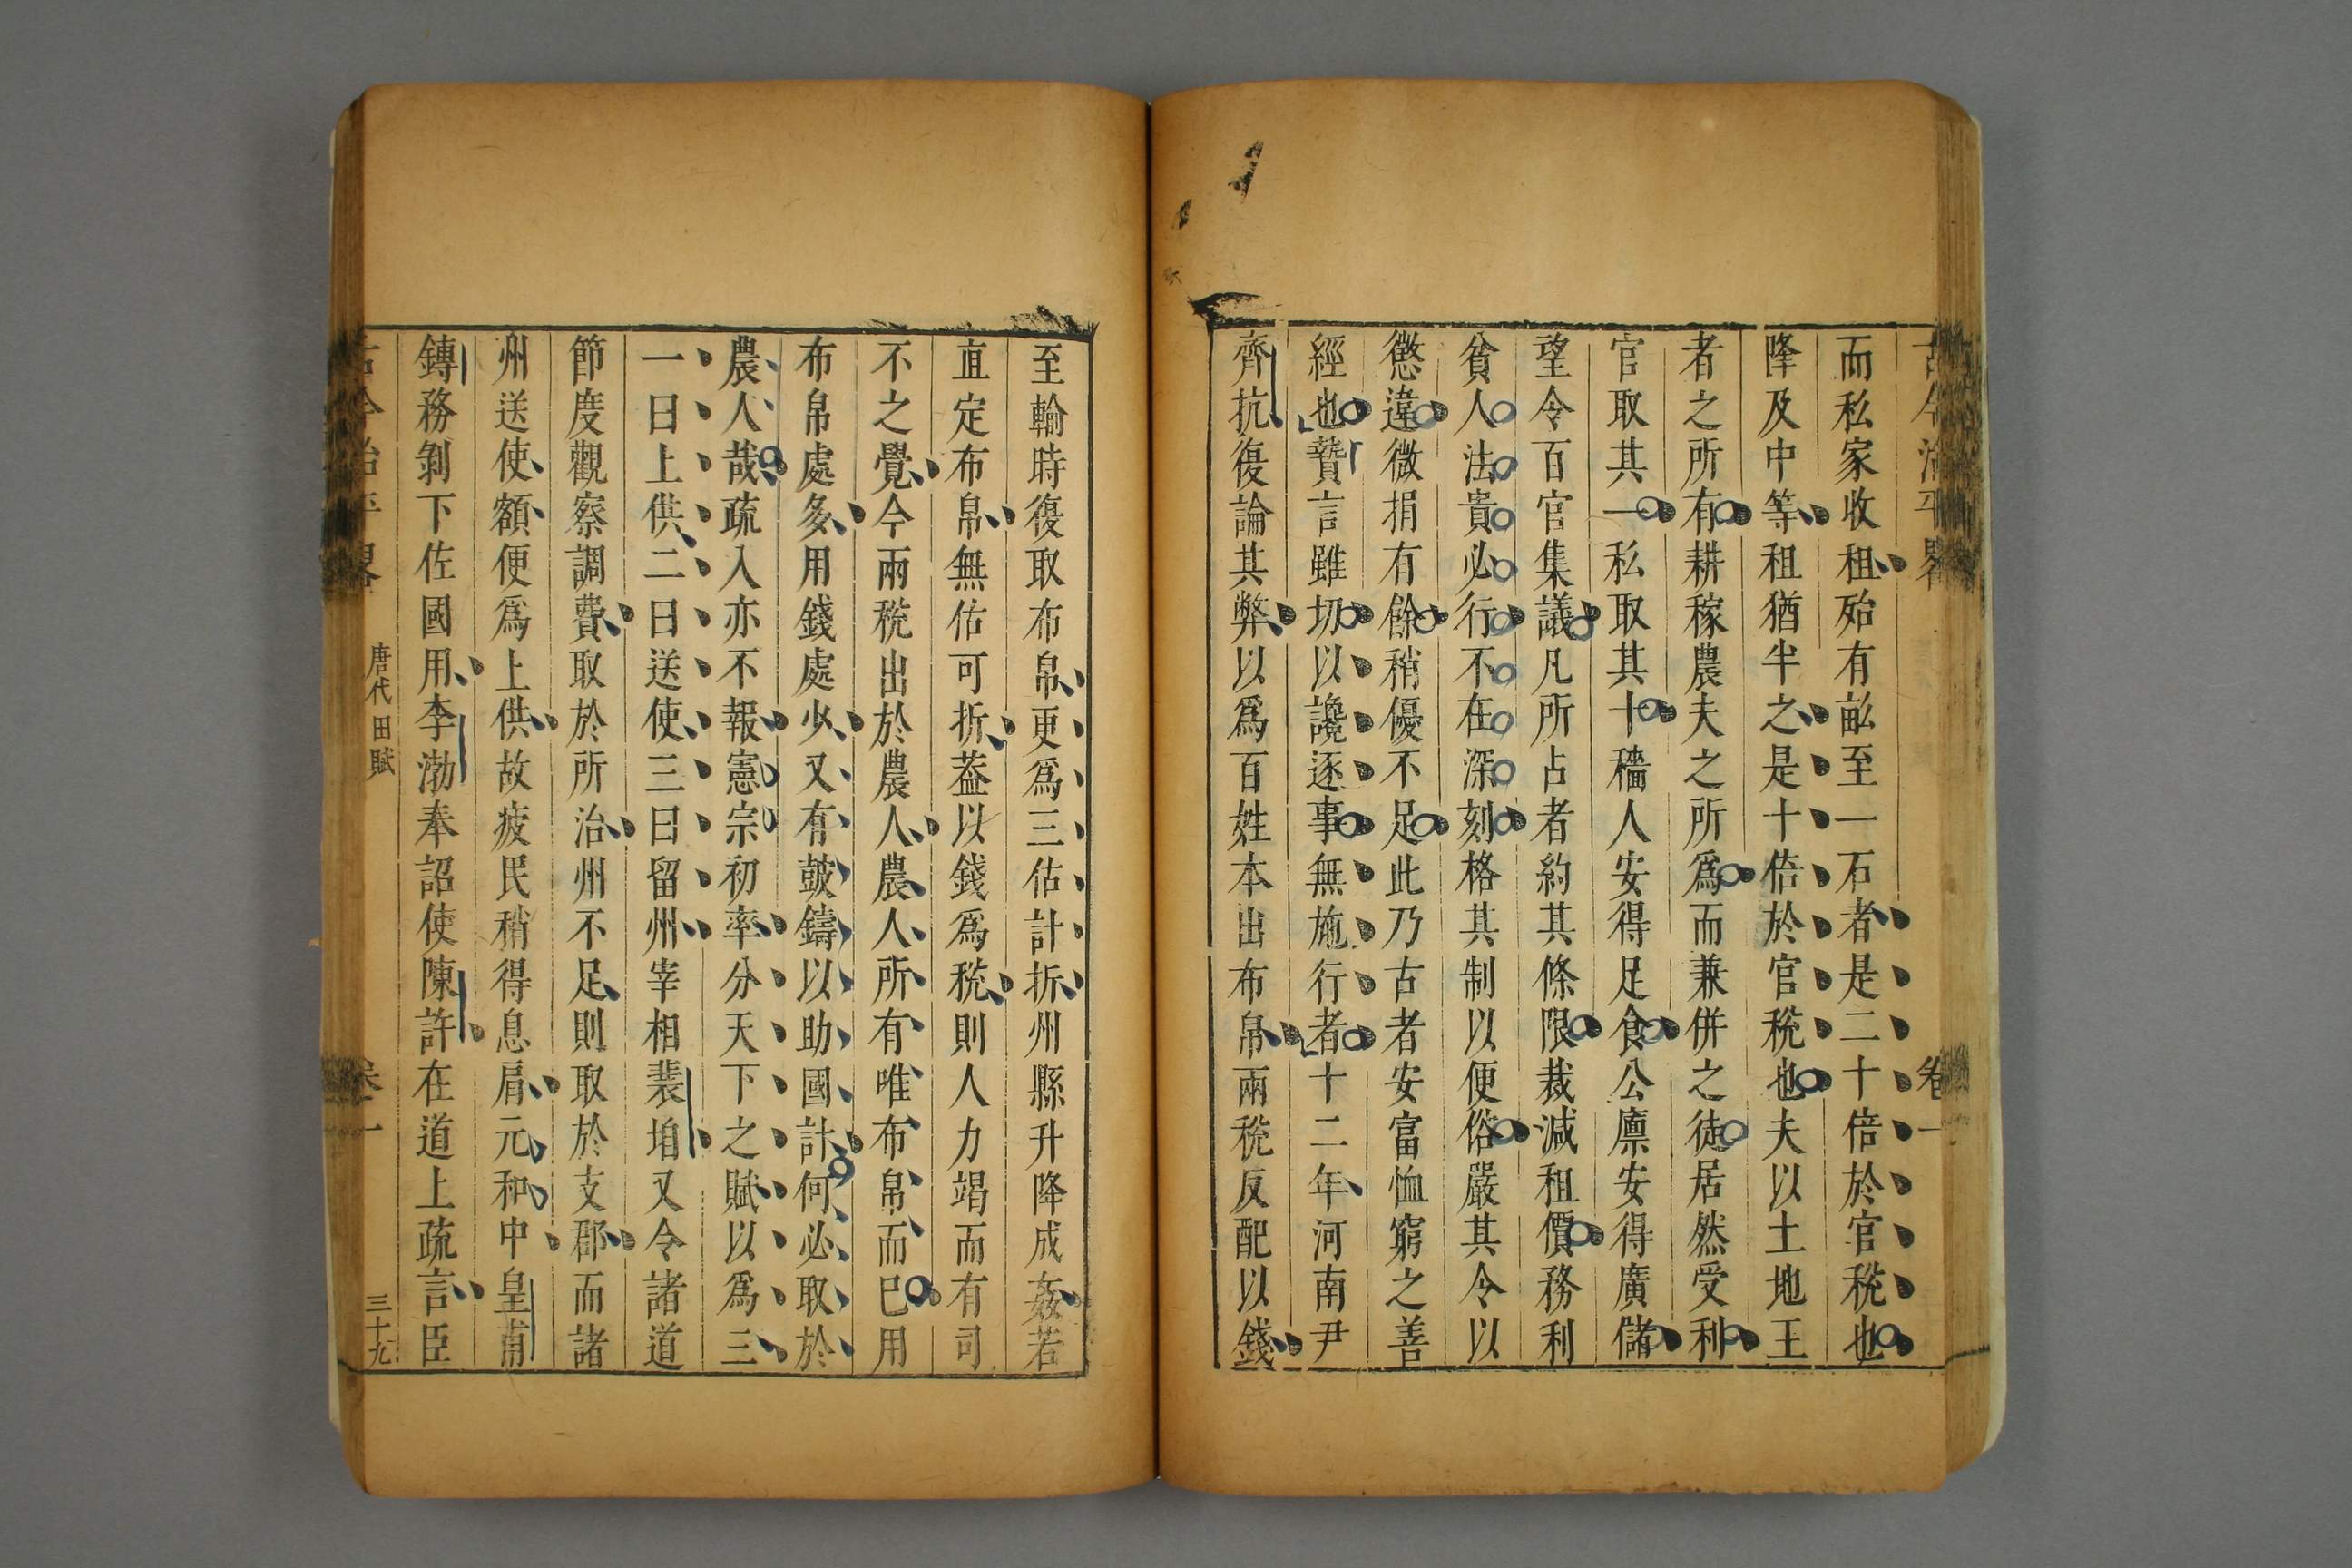 古今治平畧 卷一
而私家收租殆有畝至一石者是二十倍於官稅也
降及中等租猶半之是十倍於官稅也夫以土地王
者之所有耕稼農夫之所爲而兼併之徒居然受利
官取其一私取其十穡人安得足食公廩安得廣儲
望令百官集議凡所占者約其條限裁減租價務利
貧人法貴必行不在深刻格其制以便俗嚴其令以
懲違微捐有餘稍優不足此乃古者安富恤窮之善
經也贄言雖切以讒逐事無施行者十二年河南尹
齊抗復論其弊以爲百姓本出布帛兩稅反配以錢
至輸時復取布帛更爲三估計折州縣升降成姦若
直定布帛無估可折葢以錢爲稅則人力竭而有司
不之覺今兩稅出於農人農人所有唯布帛而已用
布帛處多用錢處少又有鼓鑄以助國計何必取於
農人哉疏入亦不報憲宗初率分天下之賦以爲三
一曰上供二曰送使三曰留州宰相裴垍又令諸道
節度觀察調費取於所治州不足則取於支郡而諸
州送使額便爲上供故疲民稍得息肩元和中皇甫
鎛務剝下佐國用李渤奉詔使陳許在道上疏言臣
古今治平畧 唐代田賦 卷一 三十九